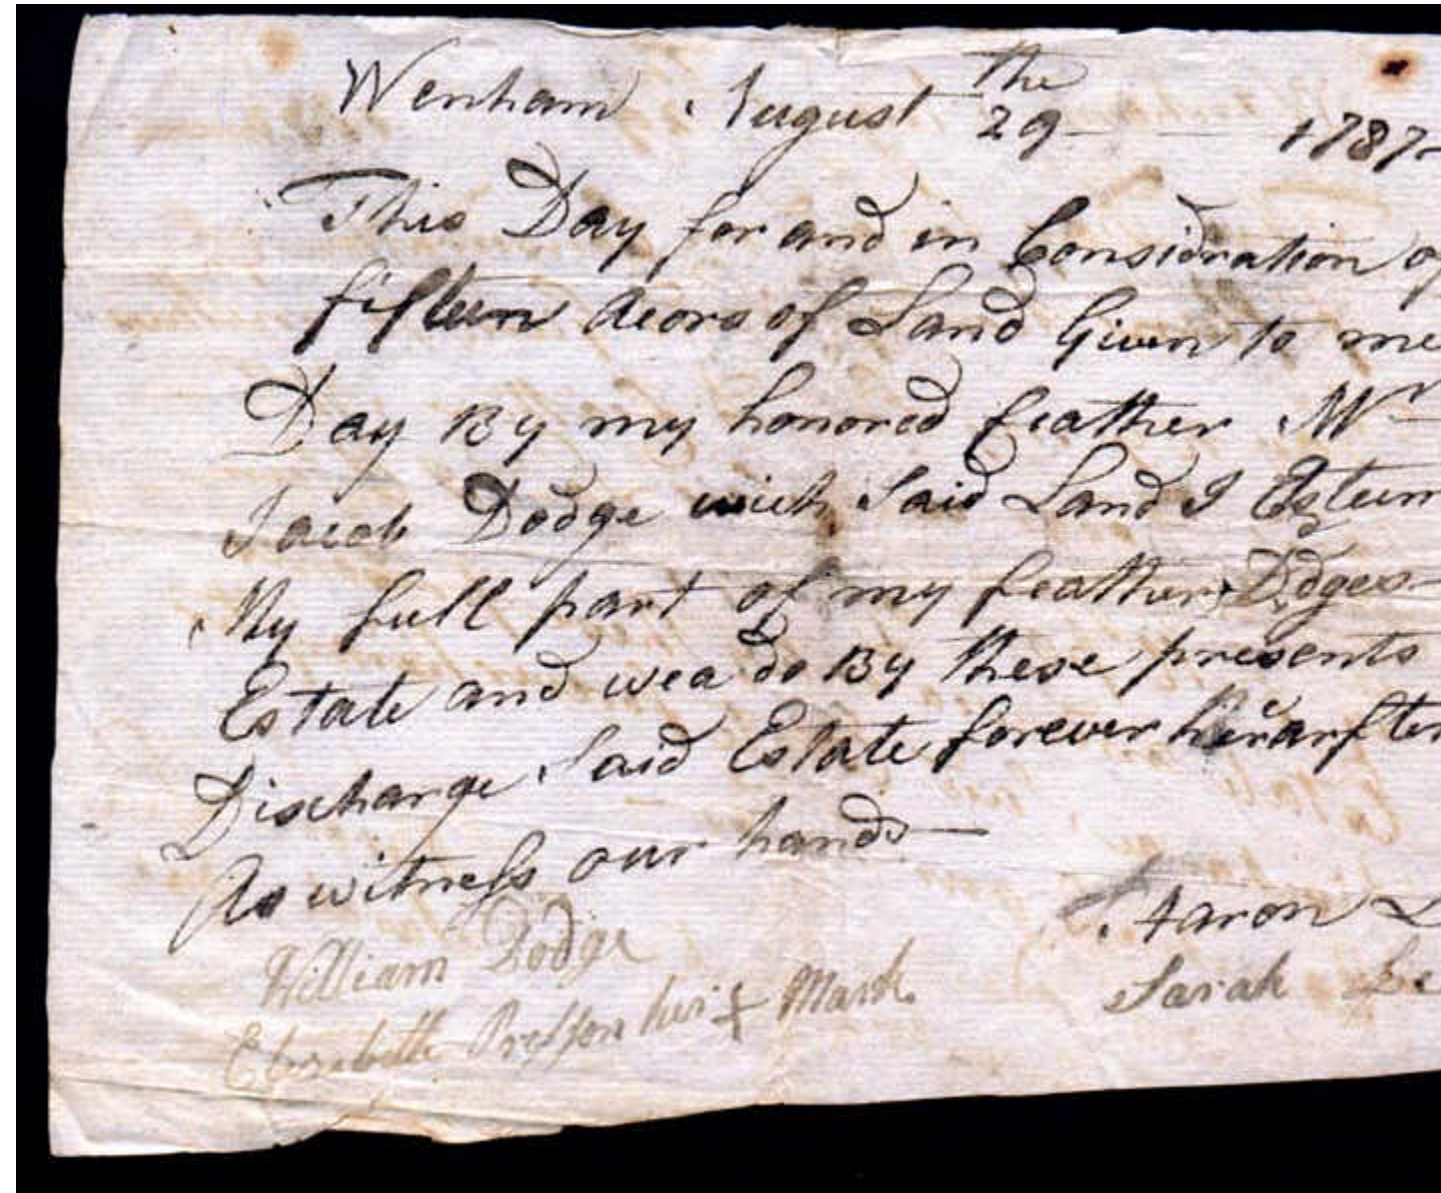 Wenham August the 29 1787
This Day for and in Considration of
fifteen acors of Land Given to me
Day By my honored feather Mr
Jacob Dodge wich Said Land I Esteem
My full part of my feather Dodges
Estate and wea do By these presents
Discharge Said Estate forever herarfter
As witness our hands
Aaron
William Dodge
Sarah
Elizabeth Presson her + Mark